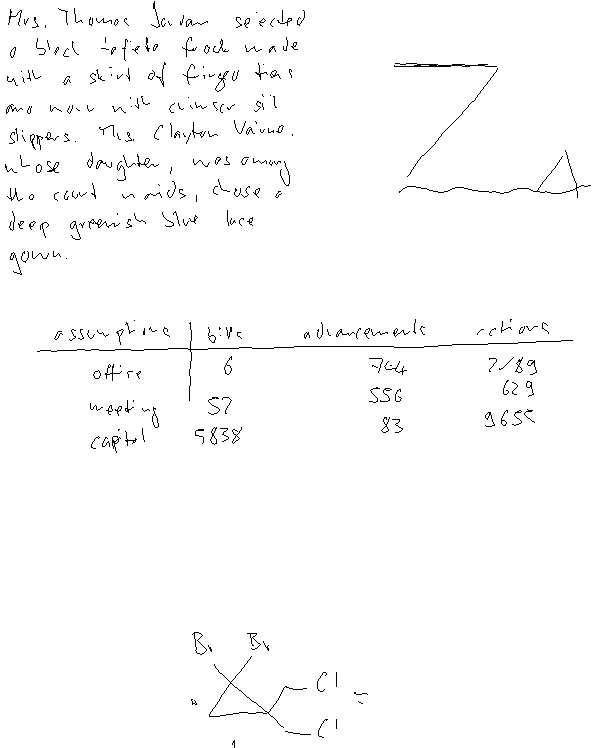 Mrs. Thomas Jordan selected
a black tafeta frock made
with a skirt of fringed tiers
and worn with crimson silk
slippers. Mrs. Clayton Nairne,
whose daughter, was among
the court maids, chose a
deep greenish blue lace
gown.
assumptions bits advancements actions
office 6 744
meeting 57 556 629
capitol 5838 83 9655
Br Br
Cl
Cl